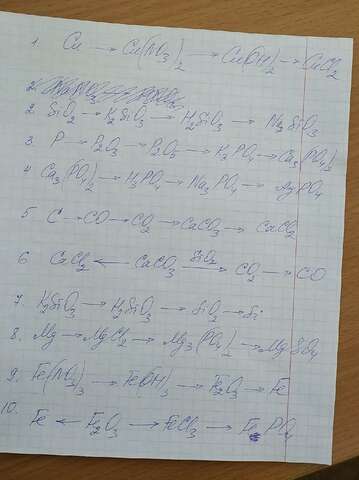 1. Cu → Cu(NO3)2 → Cu(OH)2 → CuCl2
2. SiO2 → K2SiO3 → H2SiO3 → Na2SiO3
3. P → P2O3 → P2O5 → H3PO4 → Ca3(PO4)2
4. Ca3(PO4)2 → H3PO4 → Na3PO4 → Ag3PO4
5. C → CO → CO2 → CaCO3 → CaCl2
6. CaCl2 ← CaCO3 SiO2→ CO2 → CO
7. K2SiO3 → H2SiO3 → SiO2 → Si
8. Mg → MgCl2 → Mg3(PO4)2 → MgSO4
9. Fe(NO3)3 → Fe(OH)3 → Fe2O3 → Fe
10. Fe ← Fe2O3 → FeCl3 → FePO4